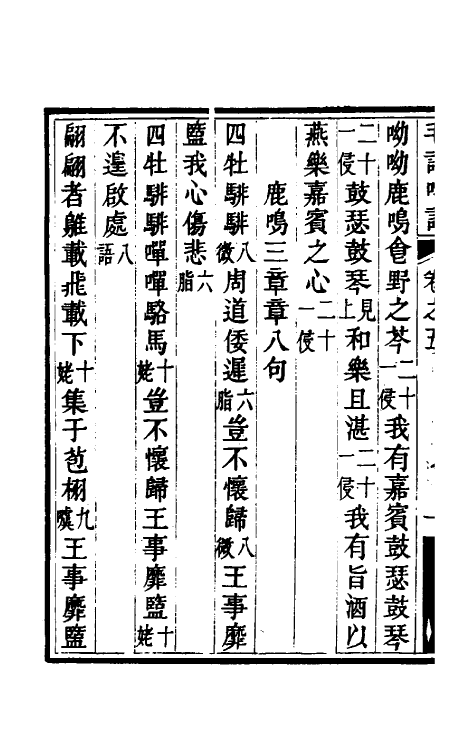 毛詩唫訂 卷之五
呦呦鹿鳴食野之芩二十一侵我有嘉賓鼓瑟鼓琴
二十一侵鼓瑟鼓琴見上和樂且湛二十一侵我有旨酒以
燕樂嘉賓之心二十一侵
鹿鳴三章章八句
四牡騑騑八微周道倭遲六脂豈不懷歸八微王事靡
盬我心傷悲六脂
四牡騑騑嘽嘽駱馬十姥豈不懷歸王事靡盬十姥
不遑啟處八語
翩翩者鵻載飛載下十姥集于苞栩九噳王事靡盬